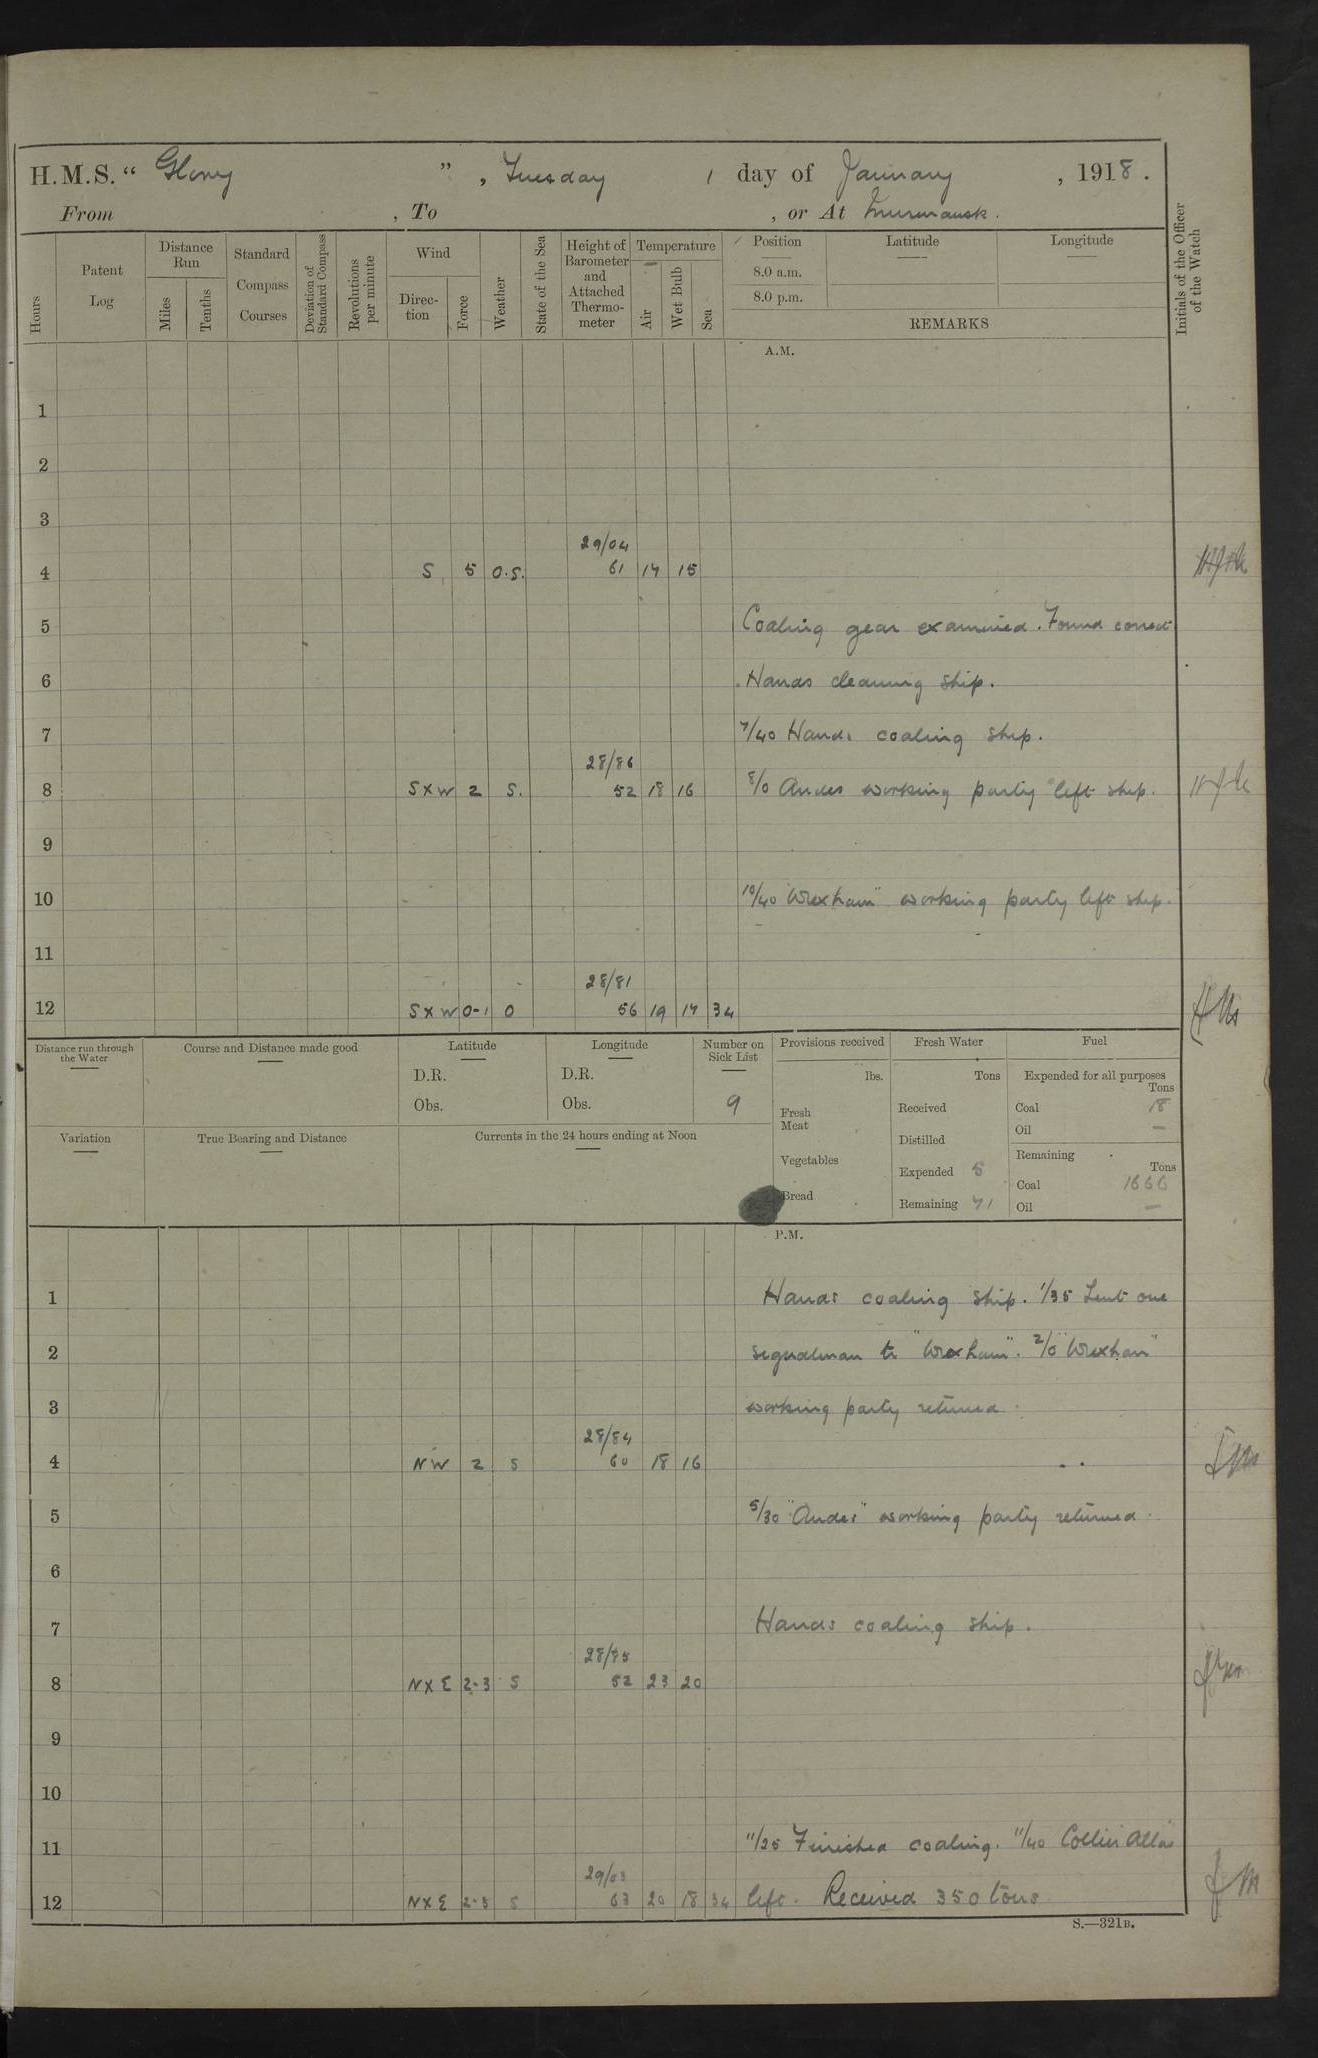 H.M.S. “ Glory ” , Tuesday 1 day of January , 1918 .
From , To , or At Murmansk.
Hours
Patent Log
Distance Run
Miles
Tenths
Standard Compass Courses
Deviation of Standard Compass
Revolutions per minute
Wind
Direction
Force
Weather
State of the Sea
Height of Barometer and Attached Thermometer
Temperature
Air
Wet Bulb
Sea
Position
8.0 a.m.
8.0 p.m.
Latitude
Longitude
REMARKS
Initials of the Officer of the Watch
A.M.
1
2
3
29/04
4 S 5 O.S. 61 17 15
5 Coaling gear examined. Found correct
6 Hands cleaning ship.
7 7/40 Hands coaling ship.
28/86
8 SXW 2 S. 52 18 16 8/0 Andes working party left ship.
9
10 10/40 "Wrexham" working party left ship.
11
28/81
12 SXW 0-1 O 56 19 17 34
Distance run through the Water
Course and Distance made good
Latitude
D.R.
Obs.
Longitude
D.R.
Obs.
Number on Sick List
9
Provisions received
lbs.
Fresh Meat
Vegetables
Bread
Fresh Water
Tons
Received
Distilled
Expended 5
Remaining 71
Fuel
Expended for all purposes
Tons
Coal 18
Oil —
Remaining
Tons
Coal 1666
Oil —
Variation
True Bearing and Distance
Currents in the 24 hours ending at Noon
P.M.
1 Hands coaling ship. 1/35 Lent one
2 signalman to "Wrexham". 2/0 "Wrexham"
3 working party returned
28/84
4 NW 2 S 60 18 16
5 5/30 "Andes" working party returned.
6
7 Hands coaling ship.
28/85
8 NXE 2-3 S 52 23 20
9
10
11 11/25 Finished coaling. 11/40 Collier
29/03
12 NXE 2-3 S 63 20 18 34 left. Received 350 tons
S.—321B.